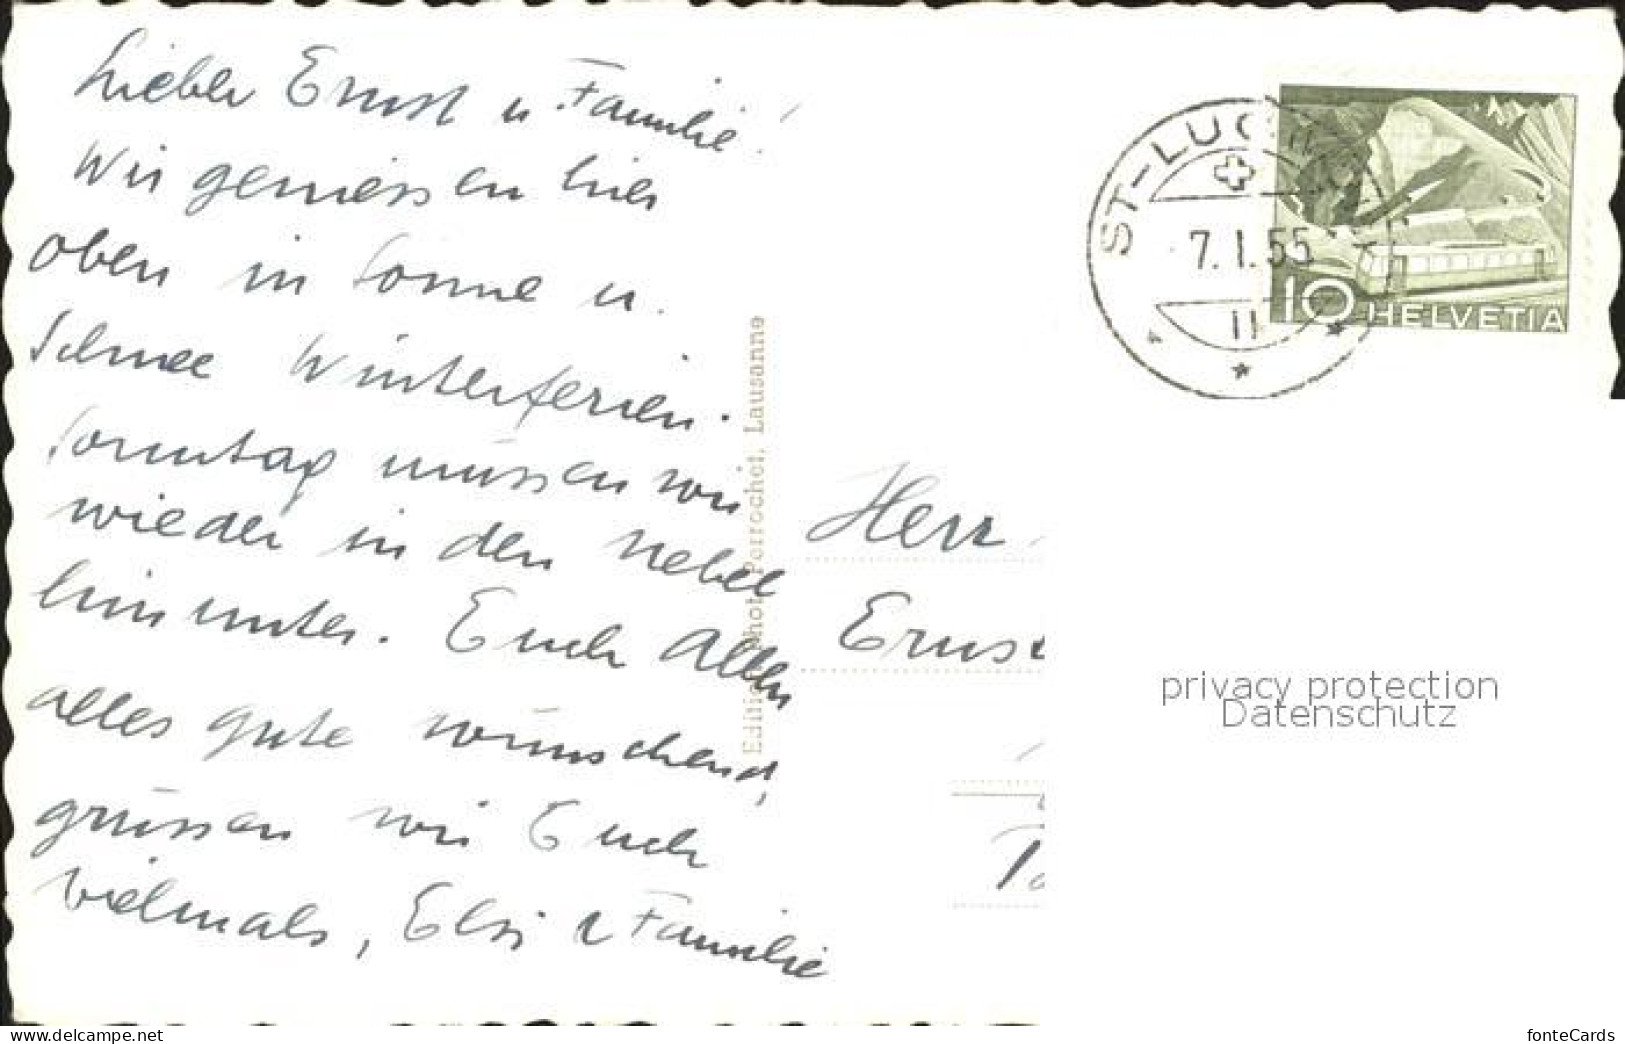 Lieber Ernst u Familie!
Wir geniessen hier
oben in Sonne u.
Schnee Winterferien.
Sonntag müssen wir
wieder in den Nebel
hinunter. Euch Allen
alles gute wünschend,
grüssen wir Euch
vielmals, Elsi u Familie
Edition Phot. Perrochet, Lausanne
ST-LUC
7.I.55
10 HELVETIA
Herr
Ernst
privacy protection
Datenschutz
www.delcampe.net
fonteCards